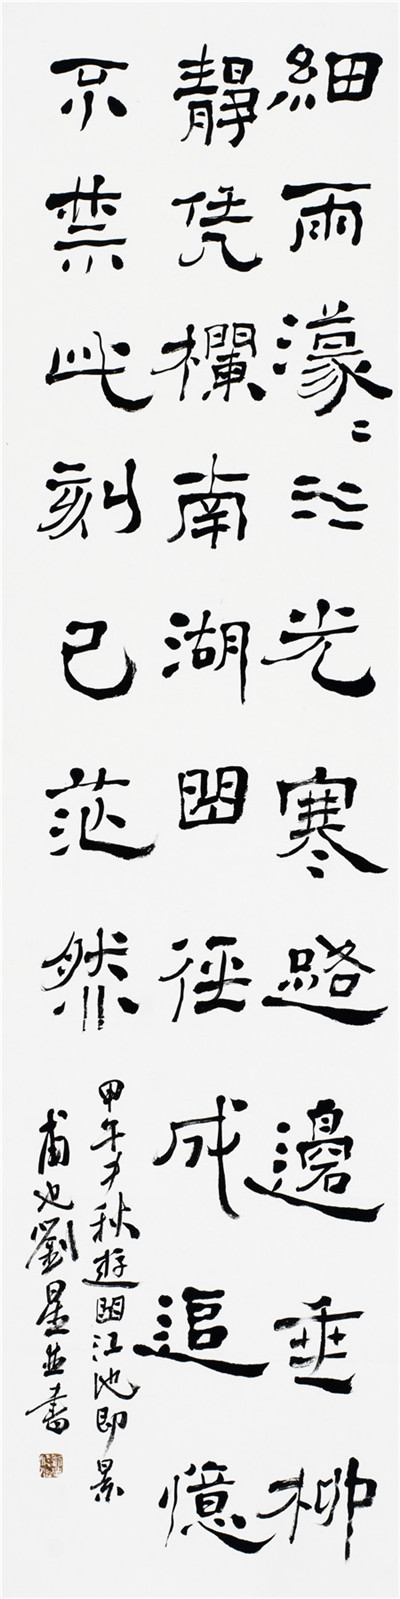 細雨濛〻江光寒路邊垂柳
靜凭欄南湖曲徑成追憶
不禁此刻已茫然
甲午秋遊曲江池即景
甫也劉星並書